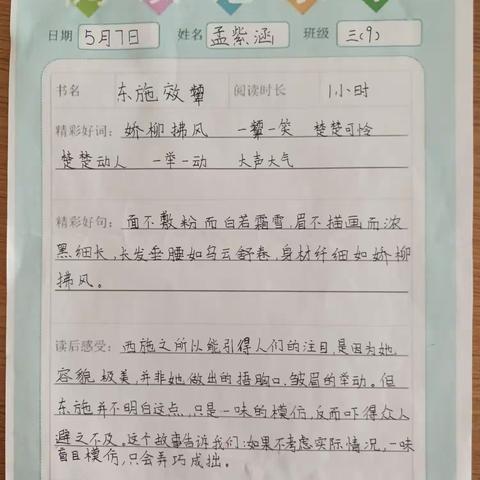 日期 5月7日 姓名 孟紫涵 班级 三(9)
书名 东施效颦 阅读时长 1小时
精彩好词: 娇柳拂风 一颦一笑 楚楚可怜
楚楚动人 一举一动 大声大气
精彩好句: 面不敷粉而白若霜雪,眉不描画而浓
黑细长,长发垂腰如乌云舒卷,身材纤细如娇柳
拂风。
读后感受: 西施之所以能引得人们的注目,是因为她
容貌极美,并非她做出的捂胸口、皱眉的举动。但
东施并不明白这点,只是一味的模仿,反而吓得众人
避之不及。这个故事告诉我们:如果不考虑实际情况,一味
盲目模仿,只会弄巧成拙。